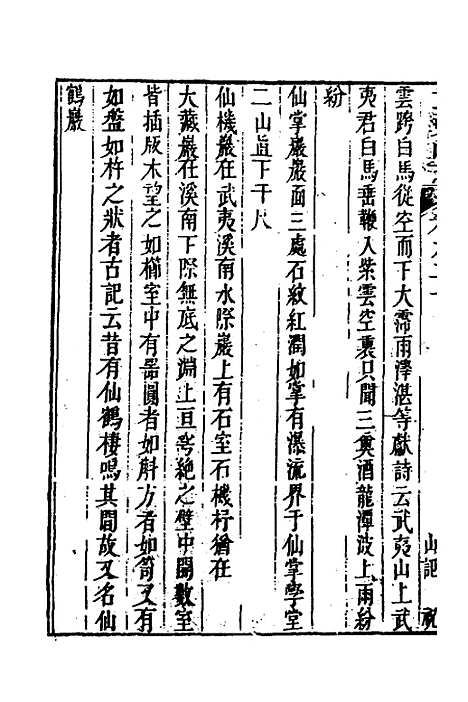 雲跨白馬從空而下大霈雨澤湛等獻詩云武夷山上武
夷君白馬垂鞭入紫雲空裏只聞三奠酒龍潭波上雨紛
紛
仙掌巖巖面三處石紋紅潤如掌有瀑流界于仙掌學堂
二山直下千尺
仙機巖在武夷溪南水際巖上有石室石機杼猶在
大藏巖在溪南下際無底之淵上亘穹絶之壁中開數室
皆插版木望之如櫛室中有器圓者如斛方者如笥又有
如盤如杵之狀者古記云昔有仙鶴棲鳴其間故又名仙
鶴巖